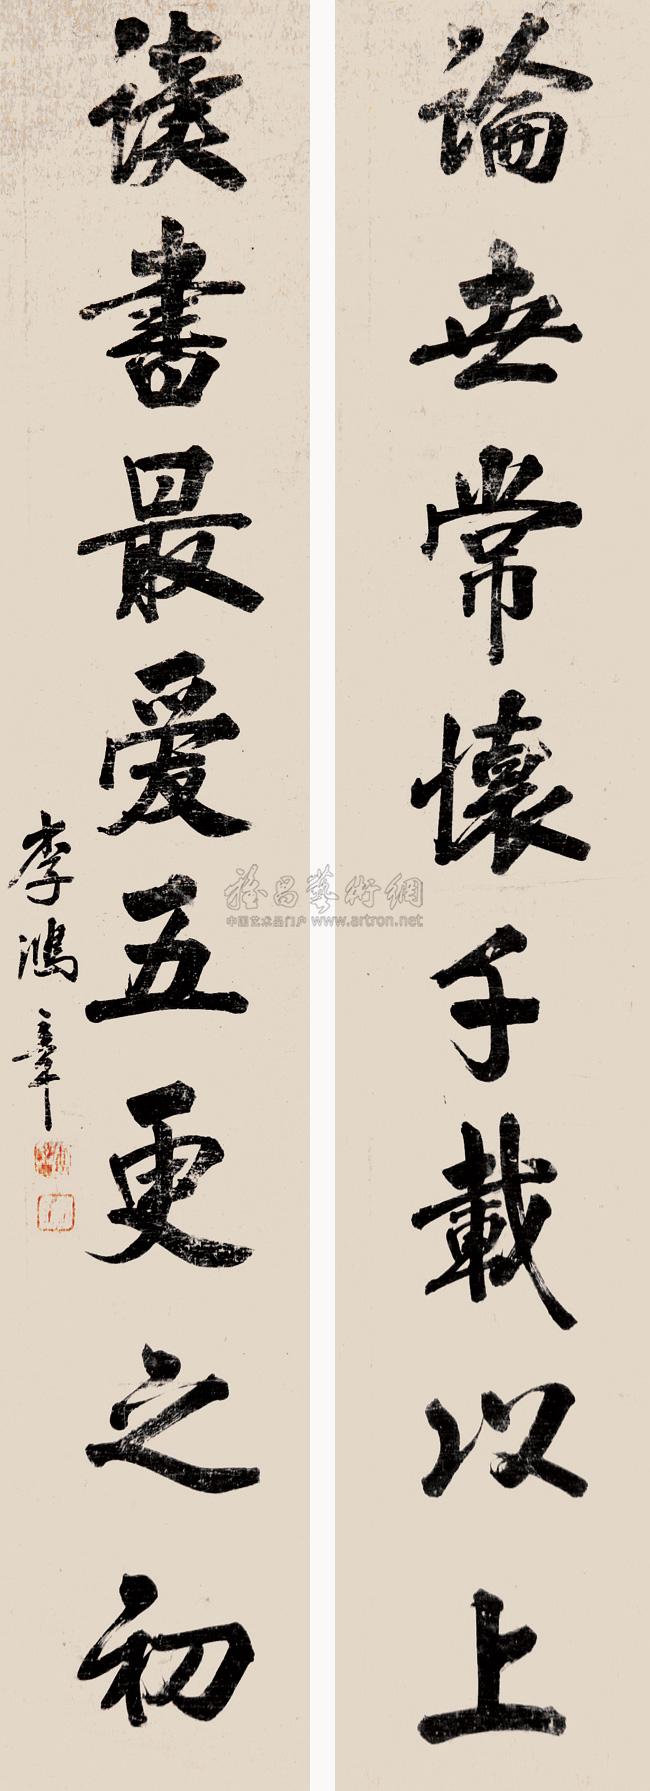 論世常懷千載以上
讀書最愛五更之初
李鴻章
雅昌藝術網
中国艺术品门户 www.artron.net